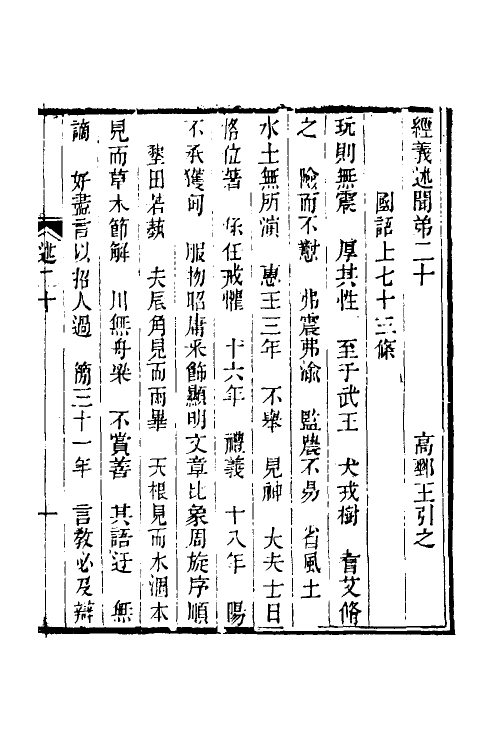 經義述聞弟二十　高郵王引之
國語上七十三條
玩則無震　厚其性　至于武王　犬戎樹　耆艾脩
之　險而不懟　弗震弗渝　監農不易　省風土
水土無所演　惠王三年　不舉　見神　大夫士日
恪位著　保任戒懼　十六年　禮義　十八年　陽
不承獲甸　服物昭庸采飾顯明文章比象周旋序順
墾田若蓺　夫辰角見而雨畢　天根見而水涸本
見而草木節解　川無舟梁　不賞善　其語迂　無
謫　好盡言以招人過　簡三十一年　言教必及辯
述二十　一